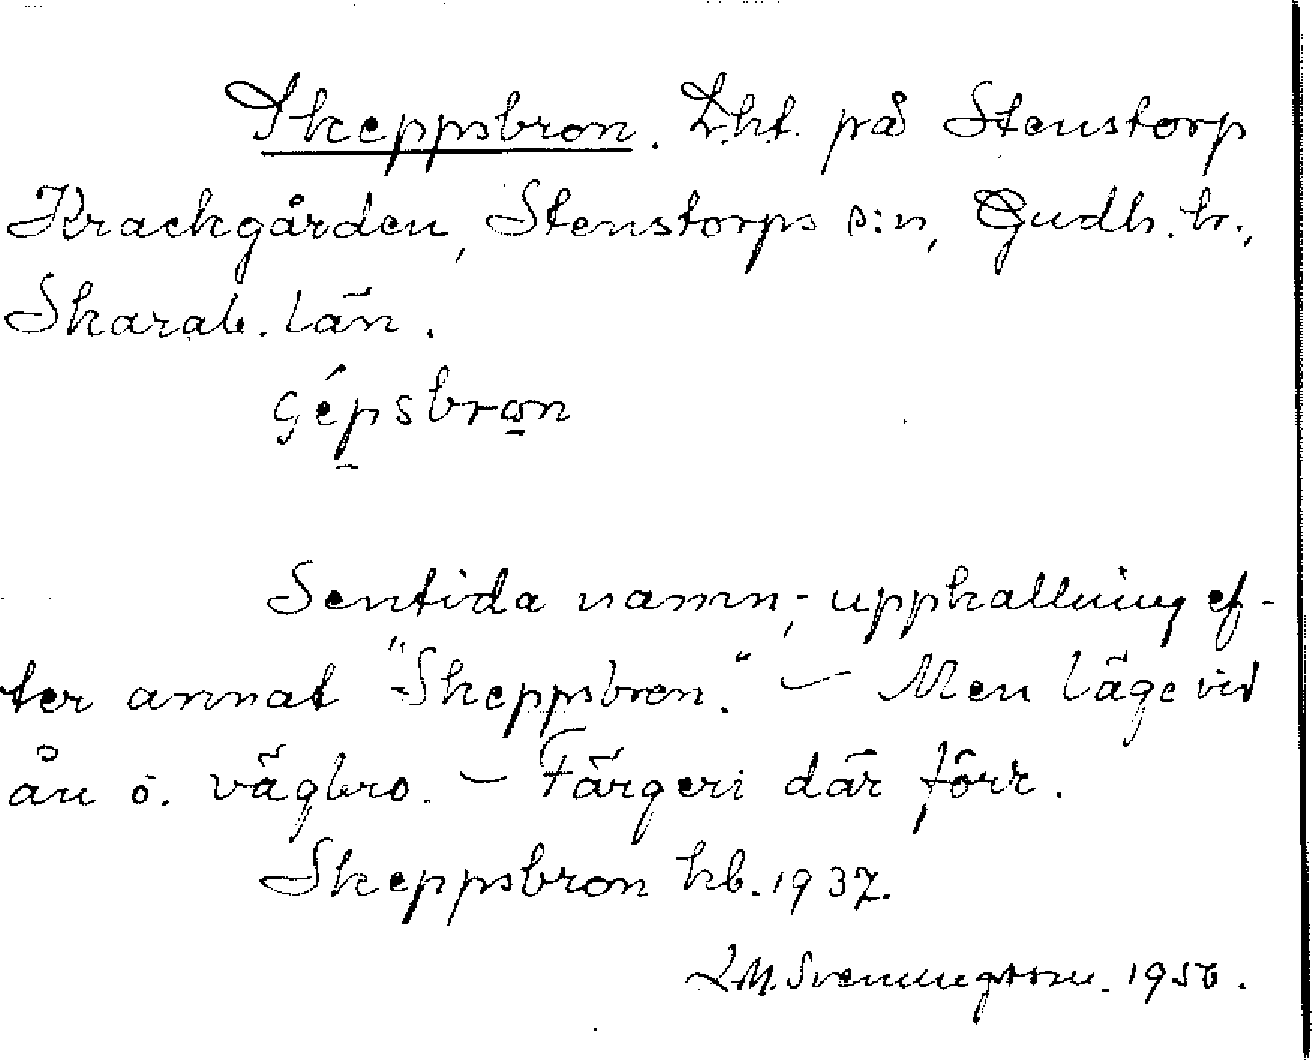 Skeppsbron. Lht. på Stenstorp
Krackgården, Stenstorps s:n, Gudh. hr.,
Skarab. län.
Sentida namn; uppkallning ef-
ter annat "Skeppsbron." — Men läge vid
ån o. vägbro. — Färgeri där förr.
Skeppsbron kb. 1937.
LM. Svenungsson. 1950.